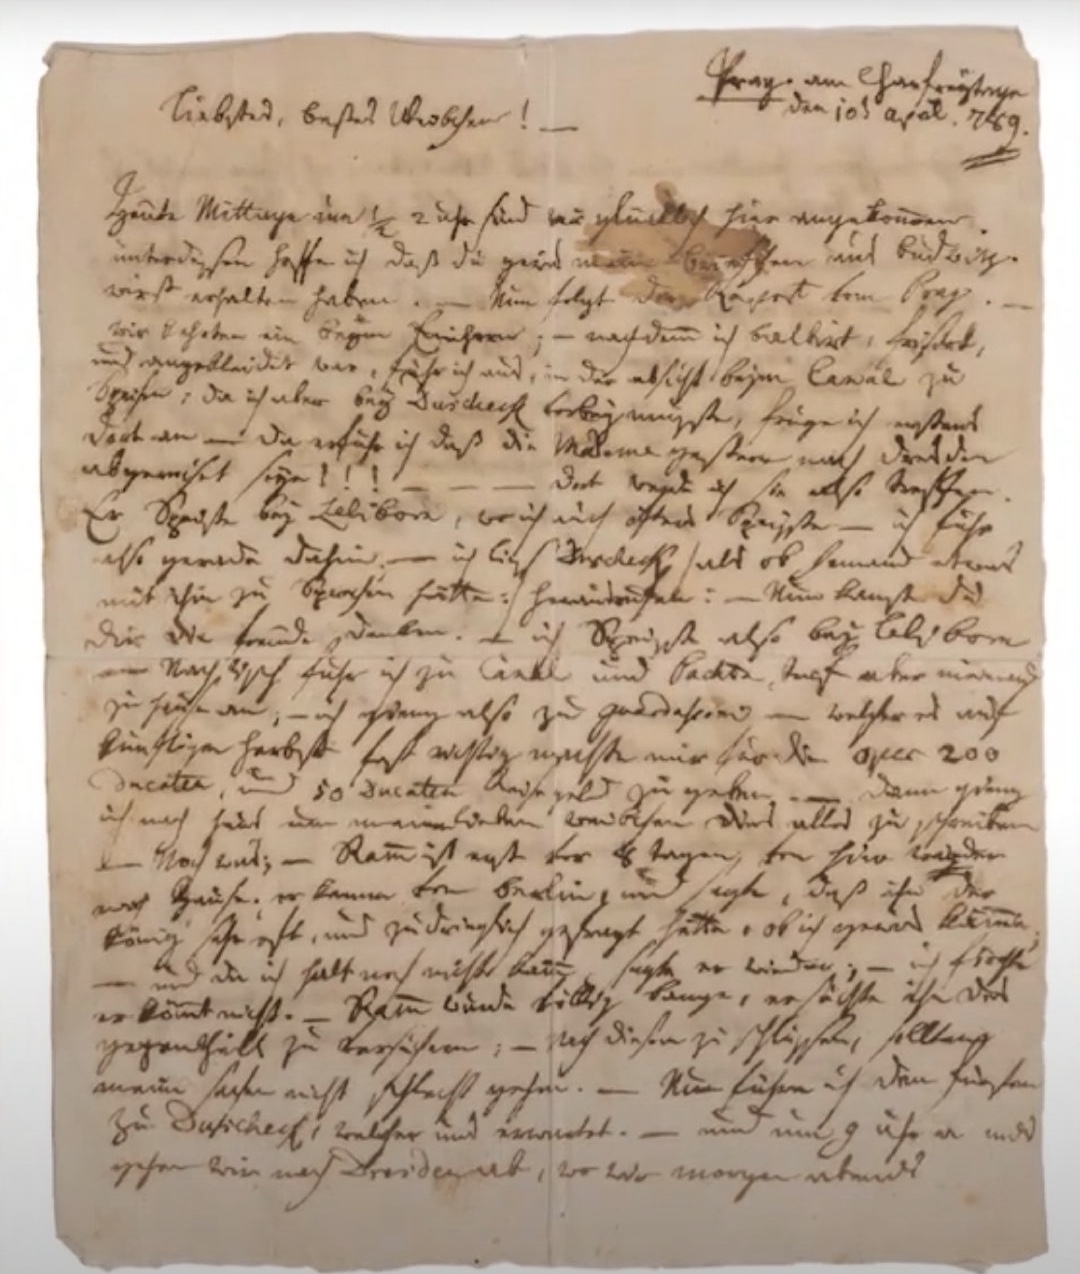 Prag. am Charfreytage
den 10t April. 789.
Liebstes, bestes Weibchen! —
Heute Mittage um ½ 2 uhr sind wir glücklich hier angekommen.
unterdessen hoffe ich daß du gewis mein briefchen aus budwitz
wirst erhalten haben. — Nun folgt der Rapport von Prag. —
wir kehrten ein beym Einhorn; — nachdemm ich balbirt, frisirt,
und angekleidet war, fuhr ich aus, in der absicht beym Canal zu
Speisen; da ich aber bey Duscheck vorbey musste, frug ich erstens
dort an — da erfuhr ich daß die Madame gestern nach dresden
abgereiset seye!!! — — — dort werde ich sie also treffen.
Er Speiste bey Leliborn, wo ich auch öfters Speiste — ich fuhr
also gerade dahin. — ich liess Duscheck /als ob Jemand etwas
mit ihm zu Sprechen hätte: herausrufen: — Nun kanst du
dir die freude denken. — ich Speisste also bey Leliborn
— Nach tisch fuhr ich zu Canal und Pachta, traf aber niemand
zu hause an; — ich gieng also zu guardasoni — welcher es auf
künftigen herbst fast richtig machte mir für die oper 200
Ducaten, und 50 Ducaten Reisegeld zu geben. — dann gieng
ich nach haus um meinem lieben weibchen dies alles zu schreiben
— Noch was; — Ramm ist erst vor 8 tagen, von hier wieder
nach Hause, er kamm von berlin, und sagte, daß ihn der
könig sehr oft, und zudringlich gefragt hätte, ob ich gewis kämme,
— und da ich halt noch nicht kam, sagte er wieder; — ich förchte
er kömmt nicht. — Ramm wurde völlig bange, er suchte ihn des
gegentheils zu versichern; — nach diesem zu schlüssen, sollten
meine sachen nicht schlecht gehen. — Nun führe ich den fürsten
zu Duscheck, welcher uns erwartet. — und um 9 uhr
gehen wir nach Dresden ab, wo wir morgen abends